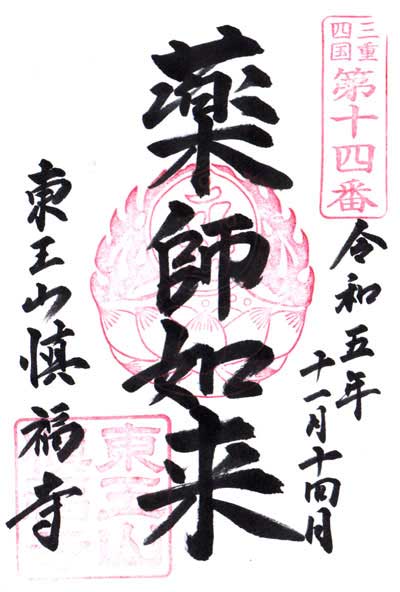 三重
四国
第十四番
令和五年
十一月十四日
薬師如来
東王山慎福寺